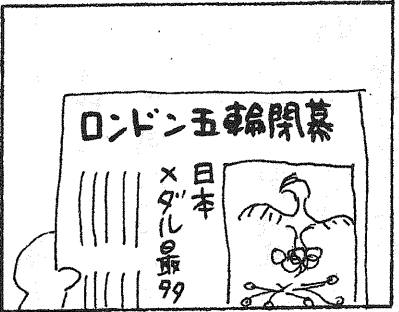 ロンドン五輪閉幕
日本
メダル最多